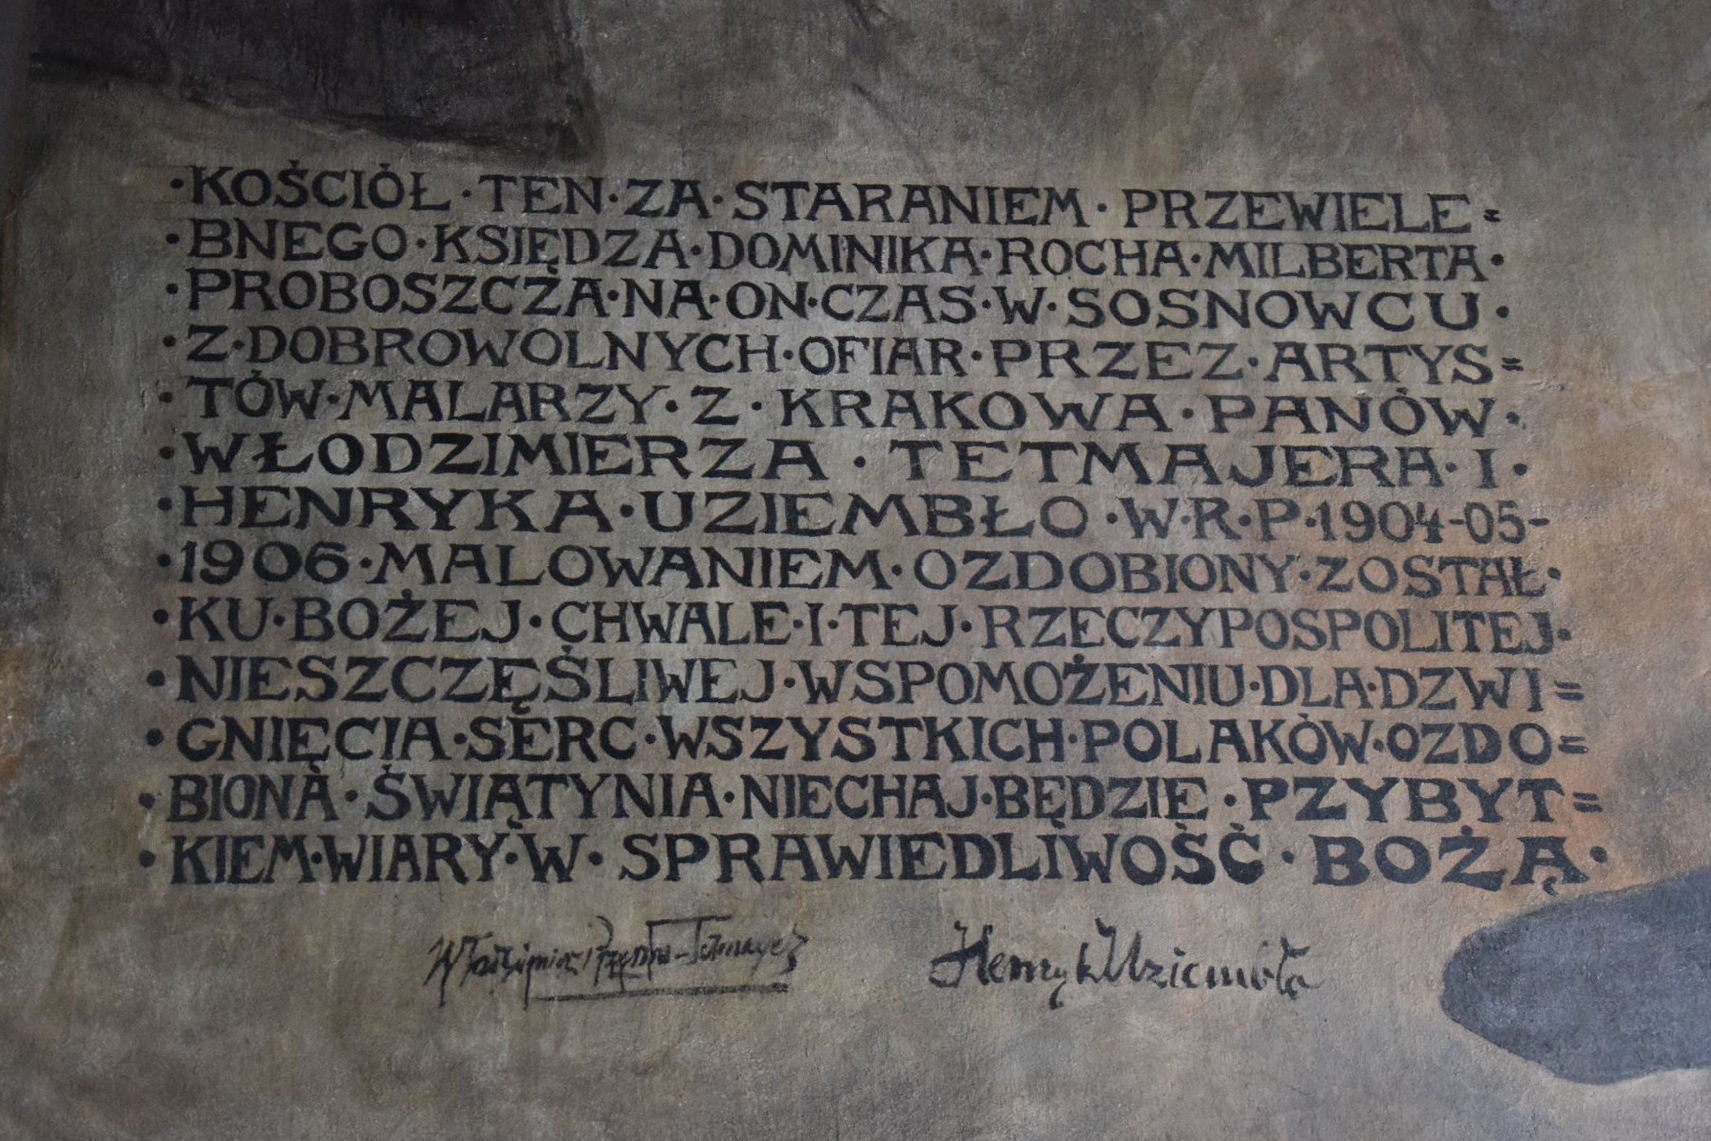 ·KOŚCIÓŁ·TEN·ZA·STARANIEM·PRZEWIELE=
·BNEGO·KSIĘDZA·DOMINIKA·ROCHA·MILBERTA·
·PROBOSZCZA·NA·ON·CZAS·W·SOSNOWCU·
·Z·DOBROWOLNYCH·OFIAR·PRZEZ·ARTYS=
·TÓW·MALARZY·Z·KRAKOWA·PANÓW·
·WŁODZIMIERZA·TETMAJERA·I·
·HENRYKA·UZIEMBŁO·W·R·P·1904-05-
·1906·MALOWANIEM·OZDOBIONY·ZOSTAŁ·
·KU·BOŻEJ·CHWALE·I·TEJ·RZECZYPOSPOLITEJ·
·NIESZCZĘŚLIWEJ·WSPOMOŻENIU·DLA·DZWI=
·GNIĘCIA·SERC·WSZYSTKICH·POLAKÓW·OZDO=
·BIONA·ŚWIĄTYNIA·NIECHAJ·BĘDZIE·PZYBYT=
·KIEM·WIARY·W·SPRAWIEDLIWOŚĆ·BOŻĄ·
Włodzimierz Przerwa-Tetmajer Henryk Uziembło